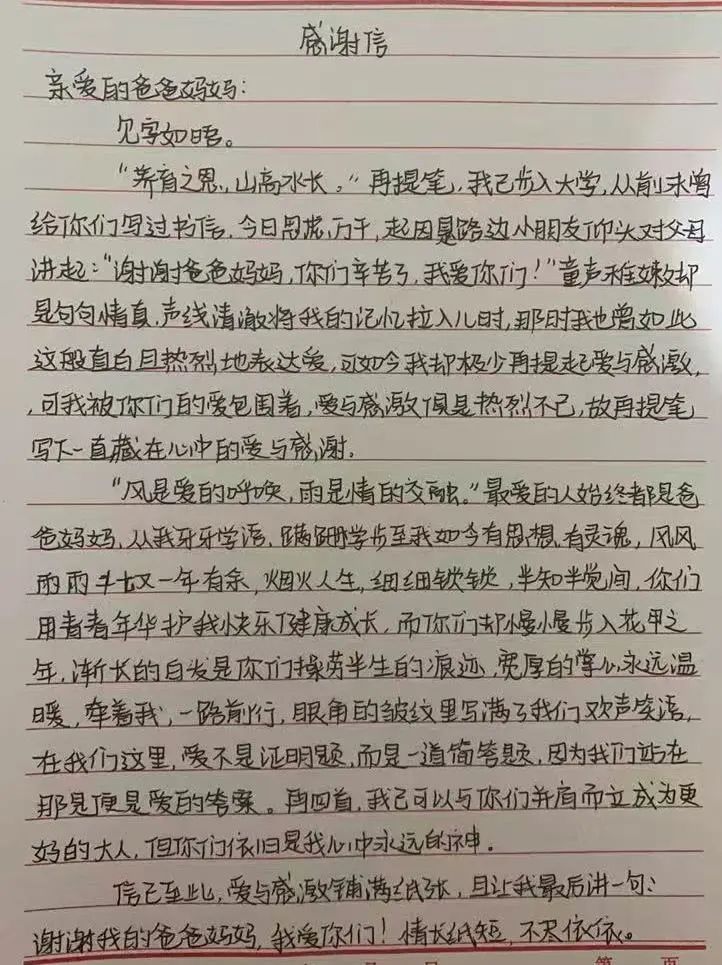 感谢信
亲爱的爸爸妈妈:
见字如晤。
“养育之恩,山高水长。”再提笔,我已步入大学,从前未曾
给你们写过书信,今日思绪万千,起因是路边小朋友仰头对父母
讲起:“谢谢爸爸妈妈,你们辛苦了,我爱你们!”童声稚嫩却
是句句情真,声线清澈将我的记忆拉入儿时,那时我也曾如此
这般直白且热烈地表达爱,可如今我却极少再提起爱与感激,
,可我被你们的爱包围着,爱与感激俱是热烈不已,故再提笔
写下一直藏在心中的爱与感谢.
“风是爱的呼唤,雨是情的交融。”最爱的人始终都是爸
爸妈妈,从我牙牙学语,蹒跚学步至我如今有思想,有灵魂,风风
雨雨十载又一年有余,烟火人生,细细锁锁,半知半觉间,你们
用青青年华护我快乐健康成长,而你们却慢慢步入花甲之
年,渐长的白发是你们操劳半生的痕迹,宽厚的掌心永远温
暖,牵着我,一路前行,眼角的皱纹里写满了我们欢声笑语,
在我们这里,爱不是证明题,而是一道简答题,因为我们站在
那里便是爱的答案。再回首,我已可以与你们并肩而立成为更
好的大人,但你们依旧是我心中永远的神.
信已至此,爱与感激铺满纸张,且让我最后讲一句:
谢谢我的爸爸妈妈,我爱你们!情长纸短,不尽依依。
第 页